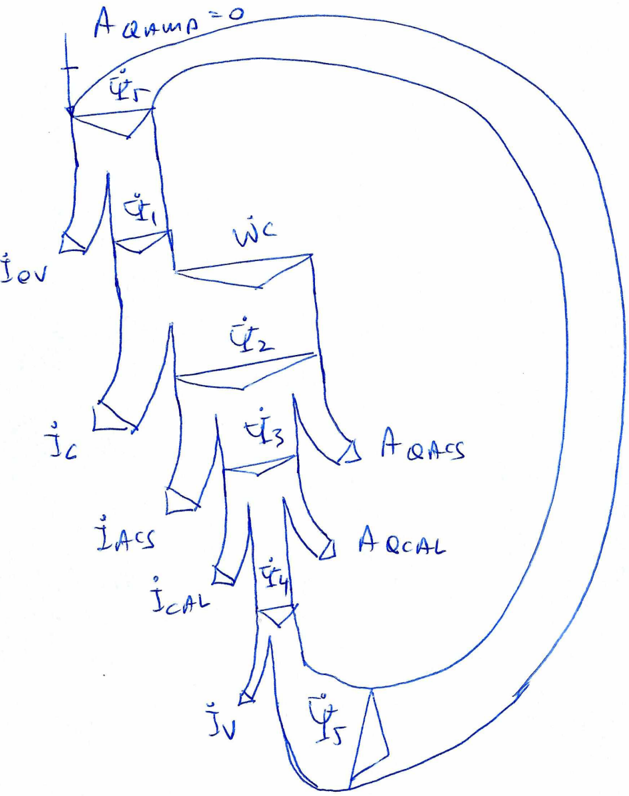 A QAMB = 0
Ψ̇5
Ψ̇1
İEV
ẆC
Ψ̇2
İC
Ψ̇3
AQACS
İACS
AQCAL
İCAL
Ψ̇4
İV
Ψ̇5